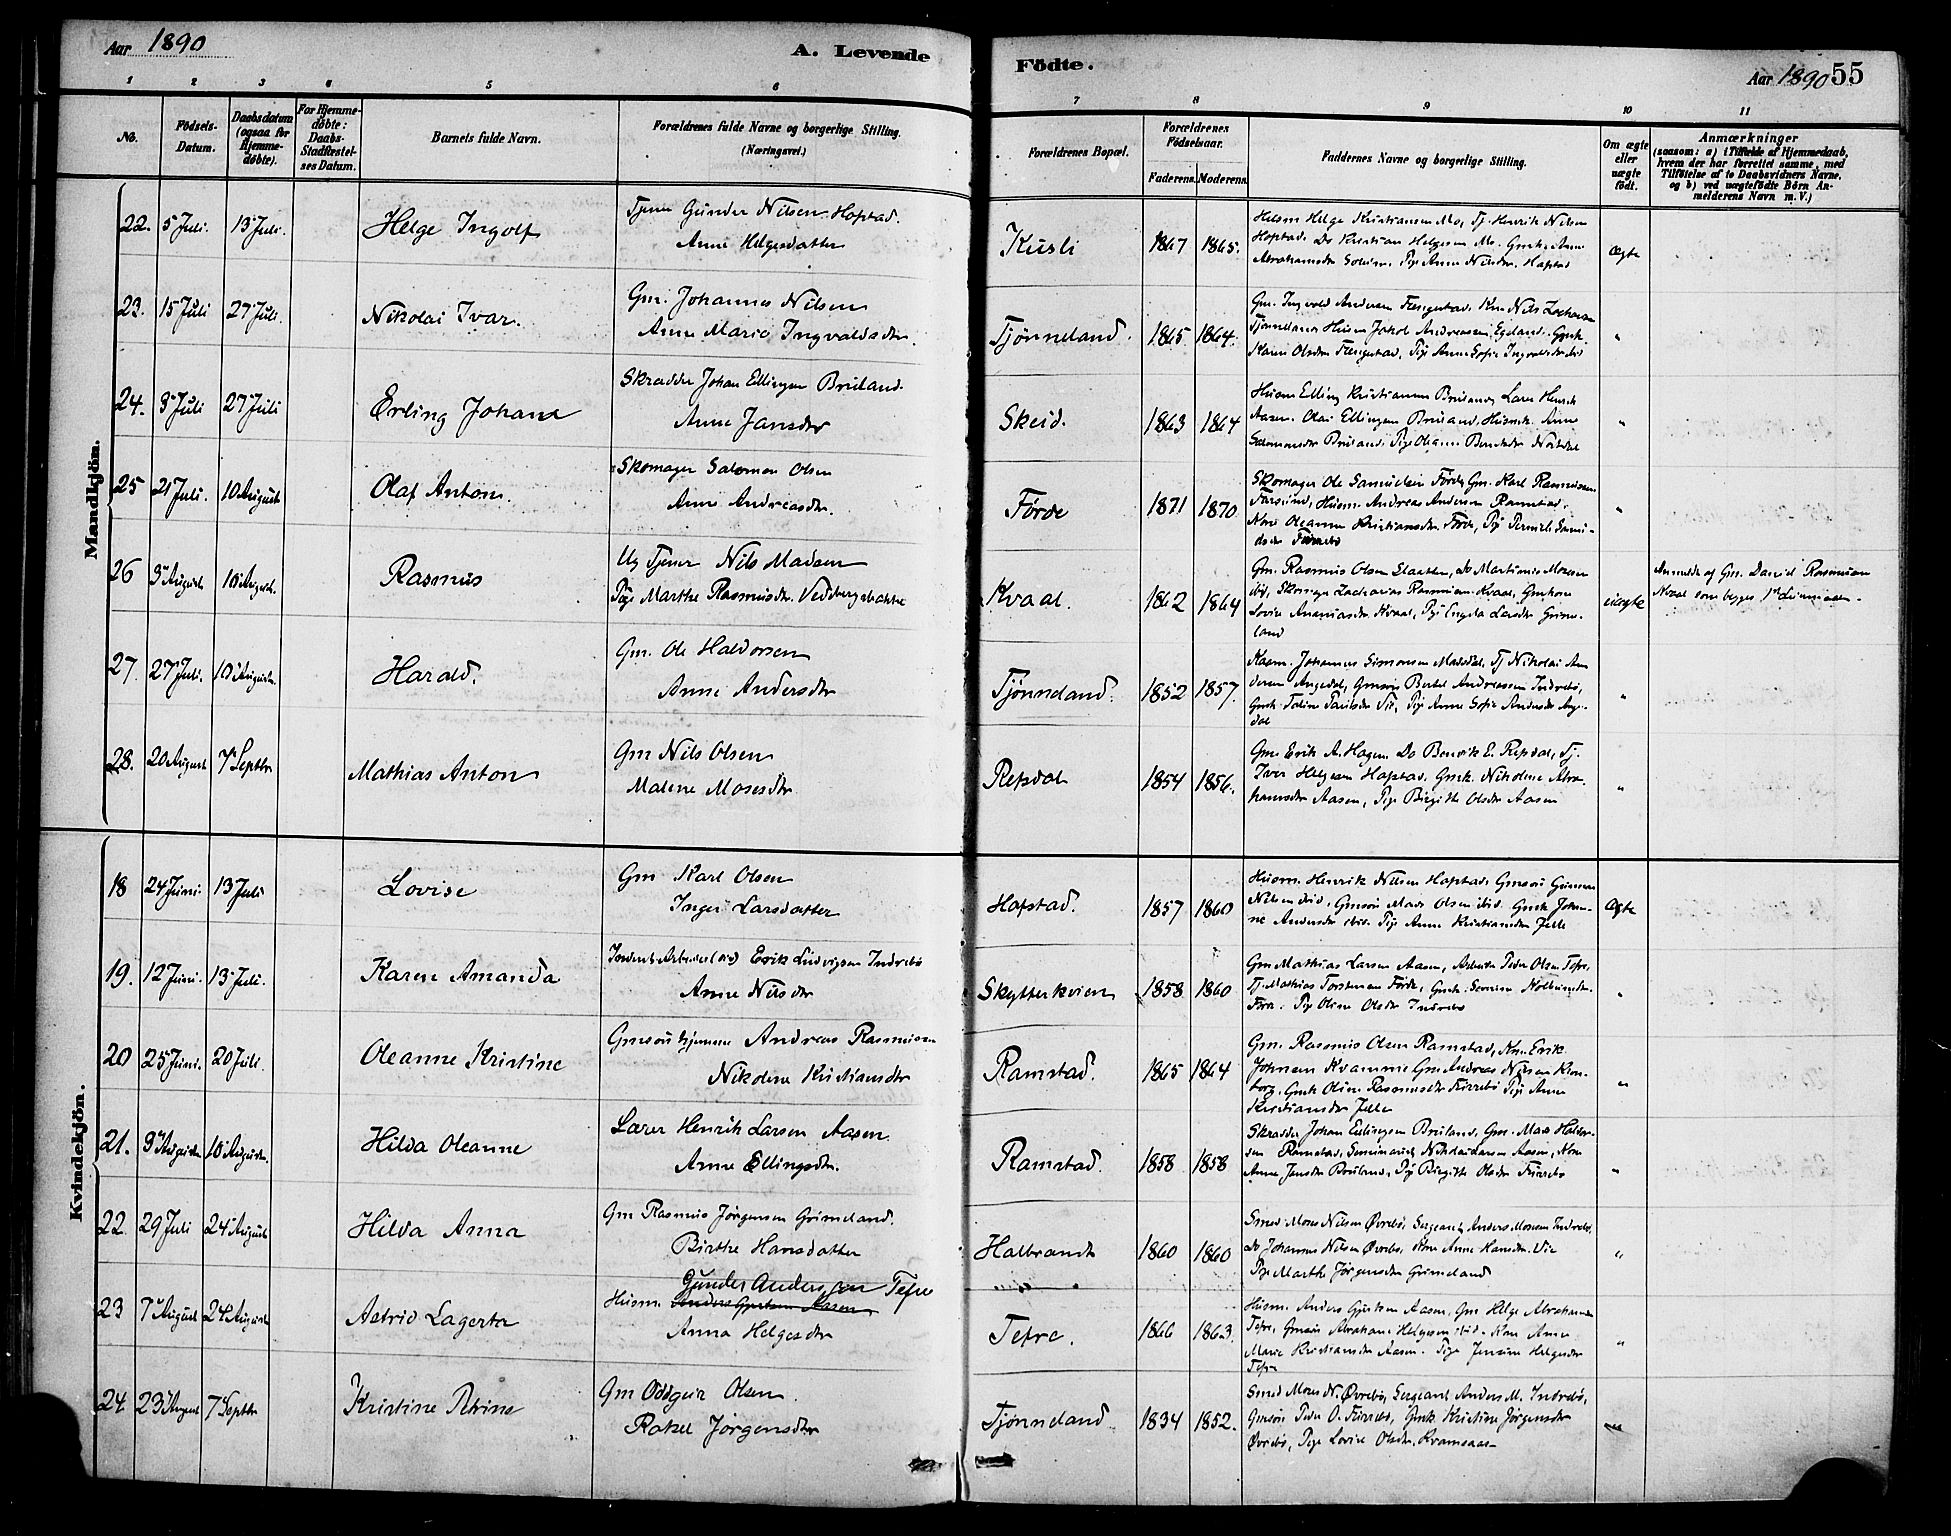 Aar 1890
A. Levende
Födte.
Aar 1890 55
1 2 3 4 5 6 7 8 9 10 11
No.
Födsels-
Datum.
Daabsdatum
(ogsaa for
Hjemme-
döbte).
For Hjemme-
döbte:
Daabs-
Stadfæstel-
ses Datum.
Barnets fulde Navn.
Forældrenes fulde Navne og borgerlige Stilling.
(Næringsvei.)
Forældrenes Bopæl.
Forældrenes
Födselsaar.
Faderens. Moderens.
Faddernes Navne og borgerlige Stilling.
Om ægte
eller
uægte
födt.
Anmærkninger
(saasom: a) i Tilfælde af Hjemmedaab,
hvem der har forrettet samme, med
Tilföielse af to Daabsvidners Navne,
og b) ved uægtefödte Börn An-
melderens Navn m. V.)
Mandkjön.
22. 5 Juli. 13 Juli. Helge Ingolf
Tjener Gunder Nilsen Hofstad.
Anne Helgesdatter
Kusli 1867 1865.
Helge Kristiansen Mo, Tj. Henrik Nilsen
Hopstad. Do Kristian Helgesen Mo. Gmk. Anne
Abrahamsdtr Pige Anne Nilsdtr. Hopstad
Ægte
23. 15 Juli 27 Juli. Nikolai Ivar.
Gm. Johannes Nilsen
Anne Marie Ingvaldsdtr.
Tjønneland. 1865 1864.
Gm. Ingvald Andersen Nils
Tjønneland Jakob Andreassen Egeland. Gmk.
Karen Olsdtr Pige Anne Sofie Ingvaldsdtr ibid
"
24. 3 Juli 27 Juli Erling Johan
Skrædder Johan Ellingsen Bruland.
Anne Jansdtr
Skeid. 1863 1864
Husm Elling Kristiansen Bruland, Lærer Henrik
Aasen. Ellingsen Bruland, Anne
Salomonsdtr Bruland. Pige
"
25 21 Juli. 10 August Olaf Anton.
Skomager Salomon Olsen
Anne Andreasdtr.
Förde 1871 1870
Skomager Ole Samuelsen Förde, Gm. Karl Rasmussen
Farsund, Husm. Andreas Andersen Ramstad.
Kone Oleanne Kristiansdtr. Förde, Pige
"
26 3 August 10 August. Rasmus
Ug Tjener Nils Madsen
Pige Marthe Rasmusdtr. Vedvbergsbakke
Kvaal. 1862 1864
Gm. Rasmus Olsen Do Martinus Mosesen
ibid, Skomager Zacharias Rasmussen Kvaal, Gmkone
Lovise Ananiasdtr Kvaal, Pige Larsdtr Grime-
land
uægte
Anmeldt af Gm. David Rasmussen
Kvaal som begges 1ste
27. 27 Juli. 10 August. Harald.
Gm. Ole Haldorsen
Anne Andersdtr
Tjønneland. 1852 1857.
Johannes Simonsen Tj Nikolai An
dersen Angedal, Gmsön Bertel Andreassen Indrebö,
Gmk. Vie, Pige Anne Sofie Andersdtr Ange-
dal
"
28. 20 August 7 Septbr Mathias Anton
Gm Nils Olsen
Malene Mosesdtr
Repdal 1854 1856.
Gm. Erik A. Hagen, Do E. Repdal, Tj.
Iver Helgesen Hopstad, Gmk. Nikoline Abra-
hamsdtr Aasen, Pige Birgithe Olsdtr Aasen
"
Kvindekjön.
18 24 Juni. 13 Juli Lovise
Gm Karl Olsen
Inger Larsdatter
Hofstad. 1857 1860
Husm. Henrik Nilsen Hopstad, Gmsön Gunnar
Nilsen ibid, Gmsön Mads Olsen ibid. Gmk Johan-
ne Andersdtr ibid. Pige Anne Kristiansdtr Jelle
Ægte
19. 12 Juni. 13 Juli. Karen Amanda
Erik Ludvigsen Indrebö
Anne Nilsdtr
Skytterkvien 1858 1860
Gm Mathias Larsen Aasen, Arbeider Peder Olsen Tefre,
Tj. Mathias Torstensen Förde, Gmk.
Förde. Pige Oline Olsdtr Indrebö
"
20 25 Juni. 20 Juli. Oleanne Kristine
Gmsön hjemme Andreas Rasmussen
Nikoline Kristiansdtr
Ramstad. 1865 1864
Gm. Rasmus Olsen Ramstad, Erik
Johnsen Kvamme Gm Andreas Nilsen Kron-
borg, Gmk Oline Rasmusdtr Pige Anne
Kristiansdtr Jelle
"
21. 3 August 10 August. Hilda Oleanne
Lærer Henrik Larsen Aasen.
Anne Ellingsdtr.
Ramstad. 1858 1858
Skrædder Johan Ellingsen Bruland, Gm. Mads Haldor-
sen Ramstad, Nikolai Larsen Aasen, Kone
Anne Jansdtr Bruland, Pige Birgithe Olsdtr
"
22. 29 Juli 24 August Hilda Anna
Gm Rasmus Jørgensen Grimeland.
Birthe Hansdatter
Halbrandt 1860 1860
Smed Moses Nilsen Øvrebö, Sergeant Anders Monsen Indrebö,
Do Johannes Nilsen Øvrebö, Kone Anne Hansdtr. Vie
Pige Marthe Jørgensdtr Grimeland
"
23 7 August 24 August Astrid Lagerta
Gunder Andersen Tefre
Husm. Anders Gjertsen Aasen
Anna Helgesdtr
Tefre. 1866 1863.
Husm. Anders Gjertsen Aasen, Gm Helge Abrahamsen
Tefre, Gmsön Abraham Helgesen ibid. Kone Anne
Marie Kristiansdtr Aasen. Pige Jensine Helgesdtr
Tefre
"
24 23 August 7 Septbr Kristine Petrine
Gm Oddgeir Olsen.
Rakel Jørgensdtr
Tjønneland 1834 1852.
Smed Moses N. Øvrebö, Sergeant Anders M. Indrebö,
Gmsön Peder O. Gmk Kristine Jørgensdtr
Øvrebö, Pige Lovise Olsdtr, Kvamsaas
"